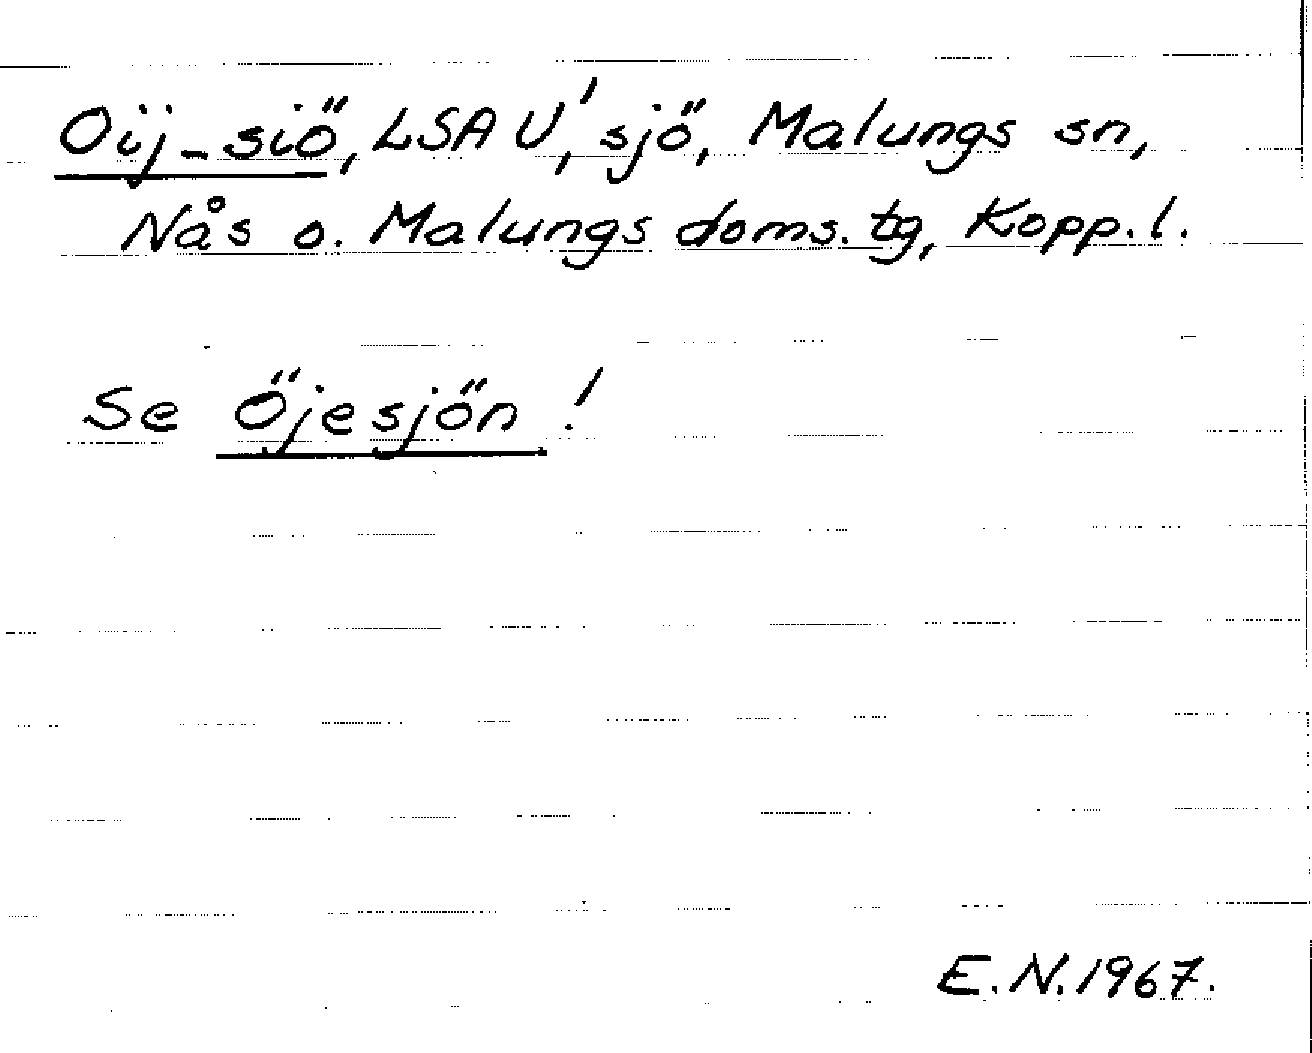 Oij-siö, LSA U', sjö, Malungs sn,
Nås o. Malungs doms. tg, Kopp. l.
Se Öjesjön!
E.N. 1967.